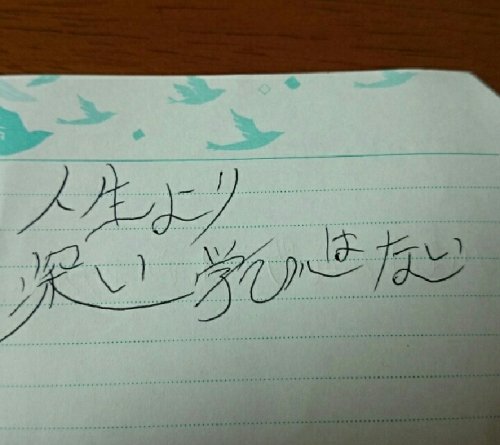 人生より
深い学びはない